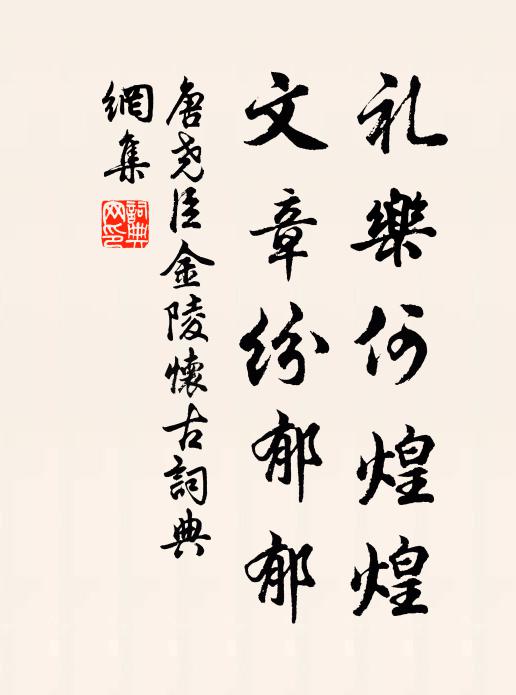 礼樂何煌煌
文章纷郁郁
唐尧臣金陵懷古詞典
網集
詞典
网印